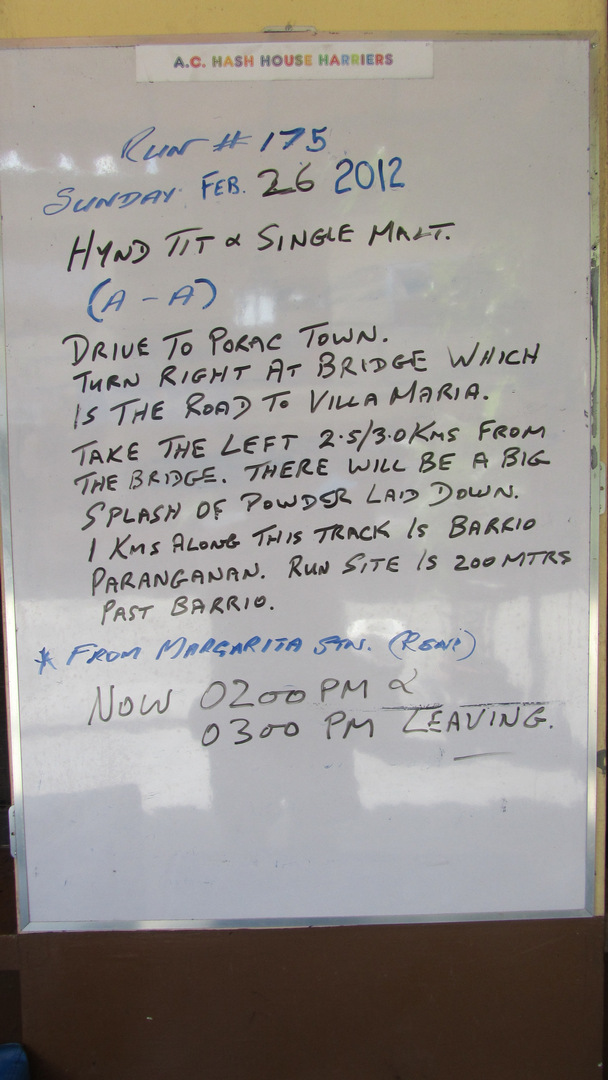 A.C. HASH HOUSE HARRIERS
RUN # 175
SUNDAY FEB. 26 2012
HYND TIT & SINGLE MALT.
(A - A)
DRIVE TO PORAC TOWN.
TURN RIGHT AT BRIDGE WHICH
IS THE ROAD TO VILLA MARIA.
TAKE THE LEFT 2.5/3.0 KMS FROM
THE BRIDGE. THERE WILL BE A BIG
SPLASH OF POWDER LAID DOWN.
1 KMS ALONG THIS TRACK IS BARRIO
PARANGANAN. RUN SITE IS 200 MTRS
PAST BARRIO.
* FROM MARGARITA STN. (RENE)
NOW 0200 PM &
0300 PM LEAVING.